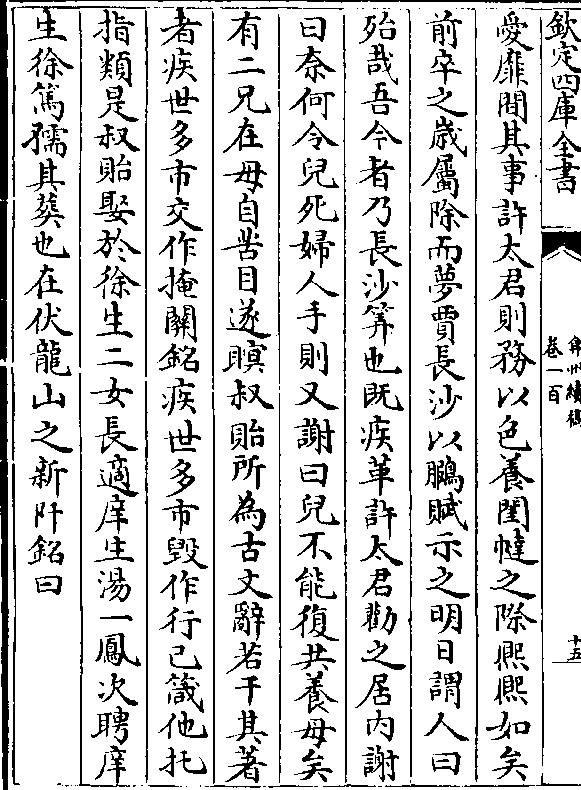 欽定四庫全書
弇州續稿
卷一百
十五
愛靡間其事許太君則務以色養閨闥之除熙熙如矣
前卒之歲屬除而夢賈長沙以鵩賦示之明日謂人曰
殆哉吾今者乃長沙筭也既疾革許太君勸之居内謝
曰奈何令兒死婦人手則又謝曰兒不能復共養母矣
有二兄在母自苦目遂瞑叔貽所為古文辭若干其著
者疾世多市交作掩關銘疾世多市毁作行己箴他托
指類是叔貽娶於徐生二女長適庠生湯一鳳次聘庠
生徐篤孺其葬也在伏龍山之新阡銘曰